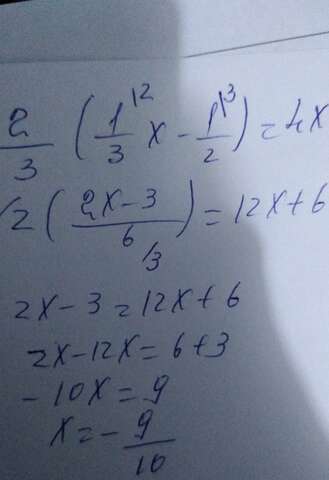 2/3 (1/3 |2 x - 1/2 |3) = 4x
/2 (2x-3 / 6 /3) = 12x+6
2x-3=12x+6
2x-12x=6+3
-10x=9
x=-9/10